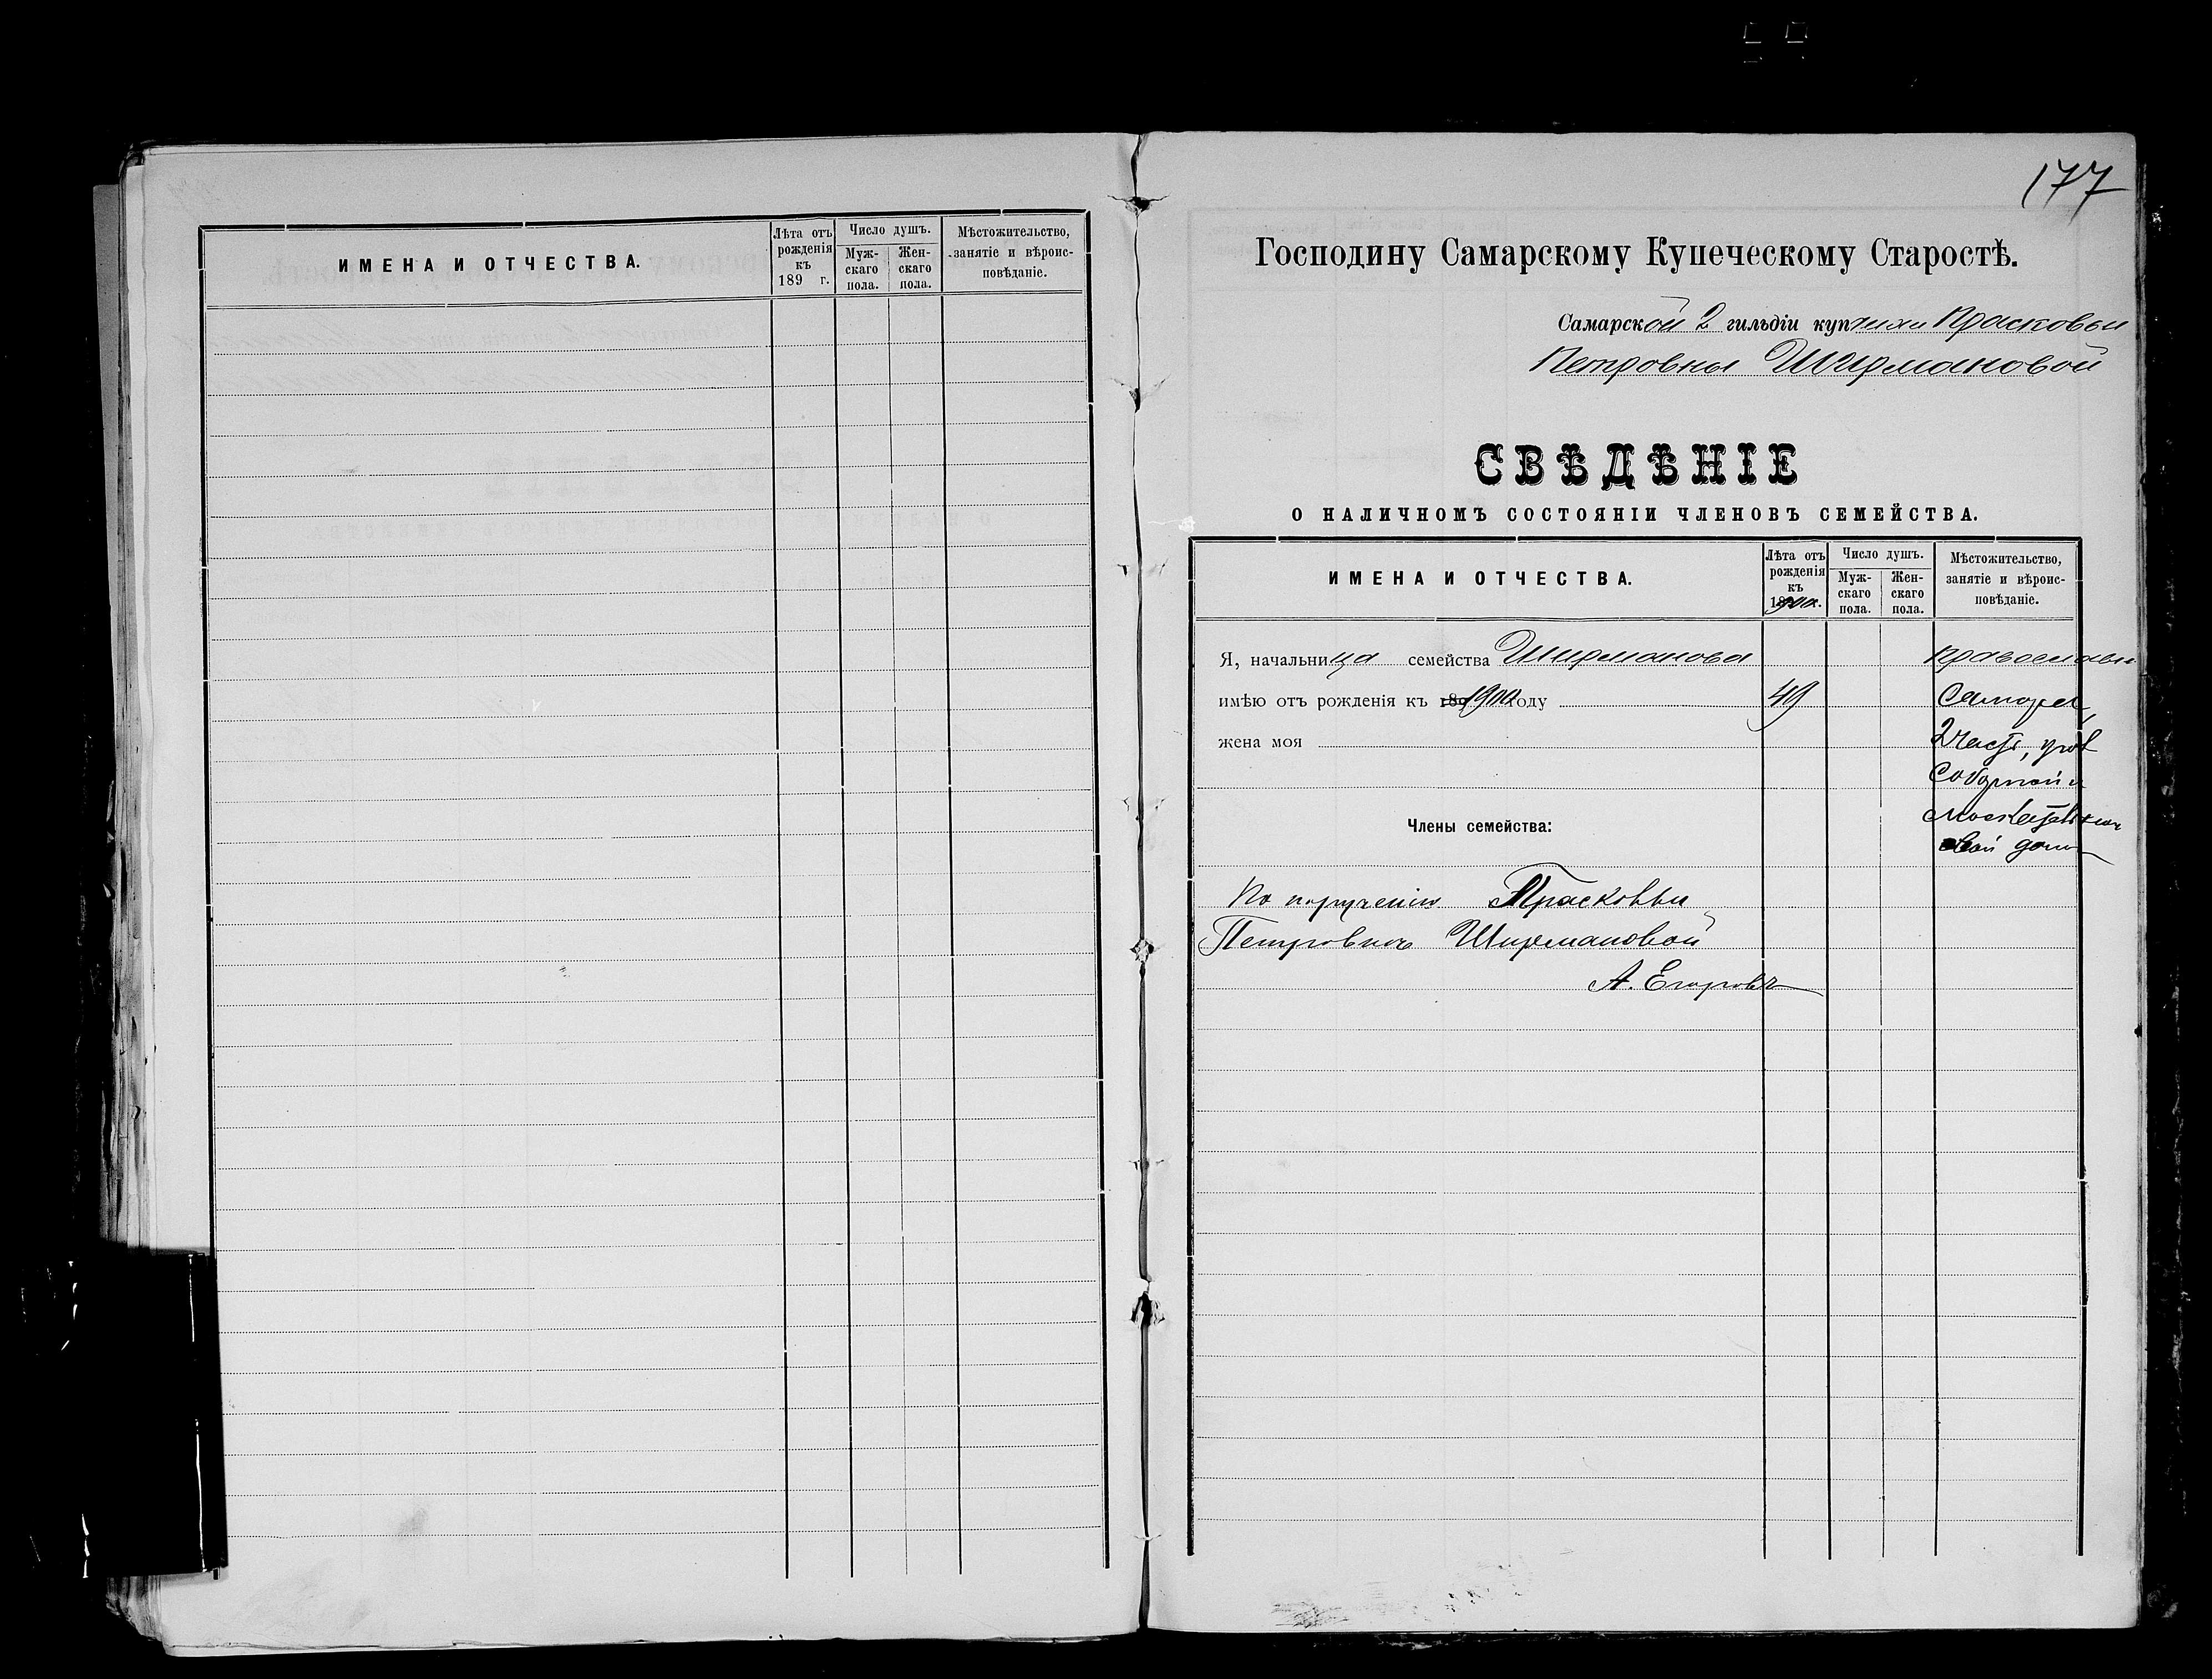 ИМЕНА И ОТЧЕСТВА.
Лѣта отъ рожденія къ 189 г.
Число душъ.
Мужскаго пола.
Женскаго пола.
Мѣстожительство, занятіе и вѣроисповѣданіе.
177
Господину Самарскому Купеческому Старостѣ.
Самарской 2 гильдіи купчихи Прасковьи
Петровны Ширмановой
СВѢДѢНІЕ
О НАЛИЧНОМЪ СОСТОЯНІИ ЧЛЕНОВЪ СЕМЕЙСТВА.
ИМЕНА И ОТЧЕСТВА.
Лѣта отъ
рожденія
къ
1900 г.
Число душъ.
Муж-
скаго
пола.
Жен-
скаго
пола.
Мѣстожительство,
занятіе и вѣроис-
повѣданіе.
Я, начальница семейства Ширманова
имѣю отъ рожденія къ 1900 году 49
жена моя
Самара,
2 часть, угол
Соборной и
свой домъ
Члены семейства:
По порученію Прасковьи
Петровны Ширмановой
А. Егоровъ